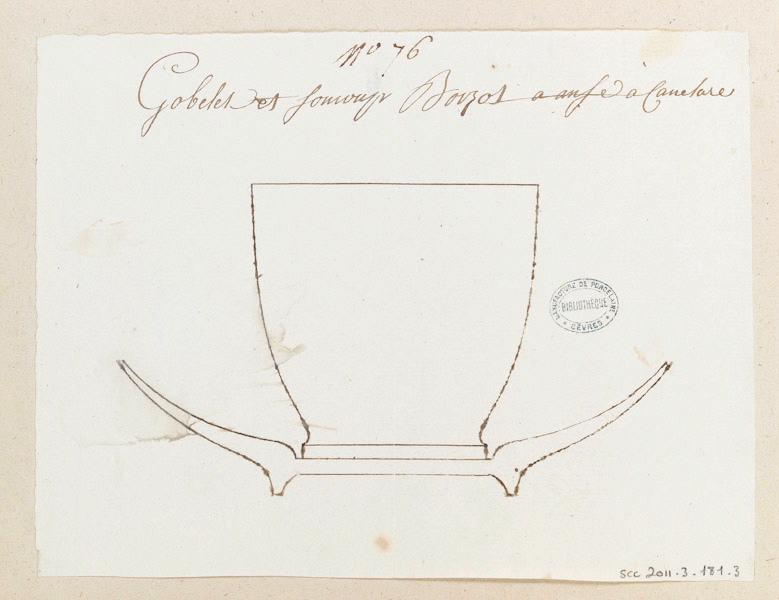 No 76
Gobelet et soucoupe Boizot a anse à Canelure
MANUFACTURE DE PORCELAINE
BIBLIOTHEQUE
* SÈVRES *
SCC 2011.3.181.3